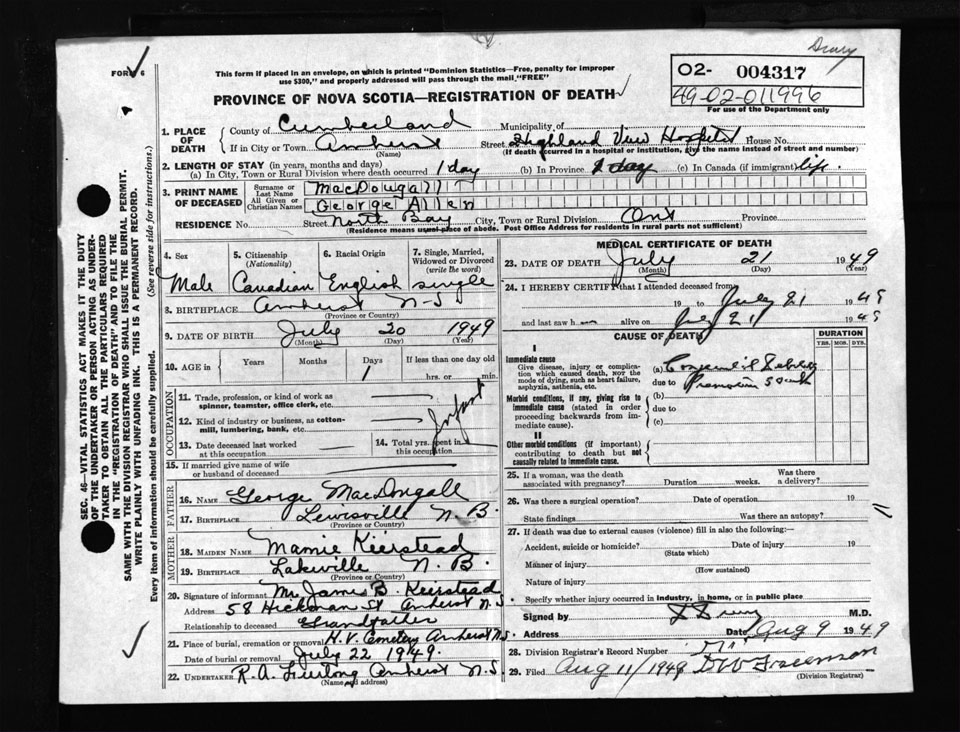 Drury
FORM 6
This form if placed in an envelope, on which is printed "Dominion Statistics—Free, penalty for improper
use $300," and properly addressed will pass through the mail, "FREE"
02- 004317
49-02-011996
For use of the Department only
PROVINCE OF NOVA SCOTIA—REGISTRATION OF DEATH
1. PLACE OF DEATH
County of Cumberland Municipality of
If in City or Town Amherst Street Highland View Hospital House No.
(Name) (If death occurred in a hospital or institution, give the name instead of street and number)
2. LENGTH OF STAY (in years, months and days)
(a) In City, Town or Rural Division where death occurred 1 day (b) In Province 1 day (c) In Canada (if immigrant) life
3. PRINT NAME OF DECEASED
Surname or Last Name MacDougall
All Given or Christian Names George Allen
RESIDENCE No. Street North Bay City, Town or Rural Division Ont Province
(Residence means usual place of abode. Post Office Address for residents in rural parts not sufficient)
4. Sex
Male
5. Citizenship (Nationality)
Canadian
6. Racial Origin
English
7. Single, Married, Widowed or Divorced (write the word)
single
8. BIRTHPLACE Amherst N-S
(Province or Country)
9. DATE OF BIRTH July 20 1949
(Month) (Day) (Year)
10. AGE in Years Months Days If less than one day old
1 hrs. or min.
OCCUPATION
11. Trade, profession, or kind of work as spinner, teamster, office clerk, etc.
12. Kind of industry or business, as cotton-mill, lumbering, bank, etc.
Infant
13. Date deceased last worked at this occupation
14. Total yrs. spent in this occupation
15. If married give name of wife or husband of deceased
FATHER
16. NAME George MacDougall
17. BIRTHPLACE Lewisville N.B.
(Province or Country)
MOTHER
18. MAIDEN NAME Mamie Keirstead
19. BIRTHPLACE Lakeville N.B.
(Province or Country)
20. Signature of informant Mr James B. Keirstead
Address 58 Hickman St Amherst N.S
Relationship to deceased Grandfather
21. Place of burial, cremation or removal H.V. Cemetery Amherst N.S.
Date of burial or removal July 22 1949.
22. UNDERTAKER R.A. Furlong Amherst N.S.
(Name and address)
MEDICAL CERTIFICATE OF DEATH
23. DATE OF DEATH July 21 1949
(Month) (Day) (Year)
24. I HEREBY CERTIFY that I attended deceased from
19 to July 21 1949
and last saw h alive on July 21 1949
CAUSE OF DEATH
DURATION
YRS. MOS. DYS.
I
Immediate cause
Give disease, injury or complication which caused death, not the mode of dying, such as heart failure, asphyxia, asthenia, etc.
(a) Congenital Debility
due to Premature
Morbid conditions, if any, giving rise to immediate cause (stated in order proceeding backwards from immediate cause).
(b)
due to
(c)
II
Other morbid conditions (if important) contributing to death but not causally related to immediate cause.
25. If a woman, was the death associated with pregnancy? Duration weeks. Was there a delivery?
26. Was there a surgical operation? Date of operation 19
State findings Was there an autopsy?
27. If death was due to external causes (violence) fill in also the following:—
Accident, suicide or homicide? Date of injury 19
(State which)
Manner of injury
(How sustained)
Nature of injury
Specify whether injury occurred in industry, in home, or in public place
Signed by Drury M.D.
Address Date Aug 9 1949
28. Division Registrar's Record Number
29. Filed Aug 11/1949 Freeman
(Division Registrar)
SEC. 46—VITAL STATISTICS ACT MAKES IT THE DUTY
OF THE UNDERTAKER OR PERSON ACTING AS UNDER-
TAKER TO OBTAIN ALL THE PARTICULARS REQUIRED
IN THE "REGISTRATION OF DEATH" AND TO FILE THE
SAME WITH THE DIVISION REGISTRAR WHO SHALL ISSUE THE BURIAL PERMIT.
WRITE PLAINLY WITH UNFADING INK. THIS IS A PERMANENT RECORD.
Every item of information should be carefully supplied. (See reverse side for instructions.)